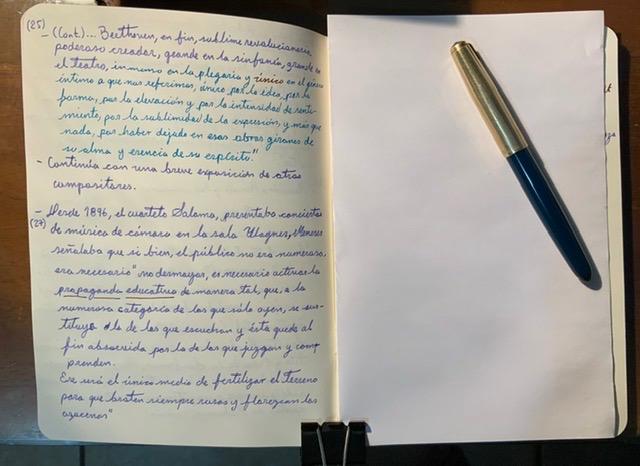 (25)
- (Cont.)... Beethoven, en fin, sublime revolucionario,
poderoso creador, grande en la sinfonía, grande en
el teatro, inmenso en la plegaria y único en el género
íntimo a que nos referimos, único por la idea, por la
forma, por la elevación y por la intensidad de senti-
miento, por la sublimidad de la expresión, y más que
nada, por haber dejado en esas obras girones de
su alma y esencia de su espíritu."
- Continúa con una breve exposición de otros
compositores.
- Desde 1896, el cuarteto Saloma, presentaba conciertos
(27) de música de cámara en la sala Wagner, Meneses
señalaba que si bien, el público no era numeroso,
era necesario "no desmayar, es necesario activar la
propaganda educativa de manera tal, que, a la
numerosa categoría de los que sólo oyen, se sus-
tituya la de los que escuchan y ésta quede al
fin absorvida por la de los que juzgan y com
prenden.
Ese será el único medio de fertilizar el terreno
para que broten siempre rosas y florezcan las
azucenas"